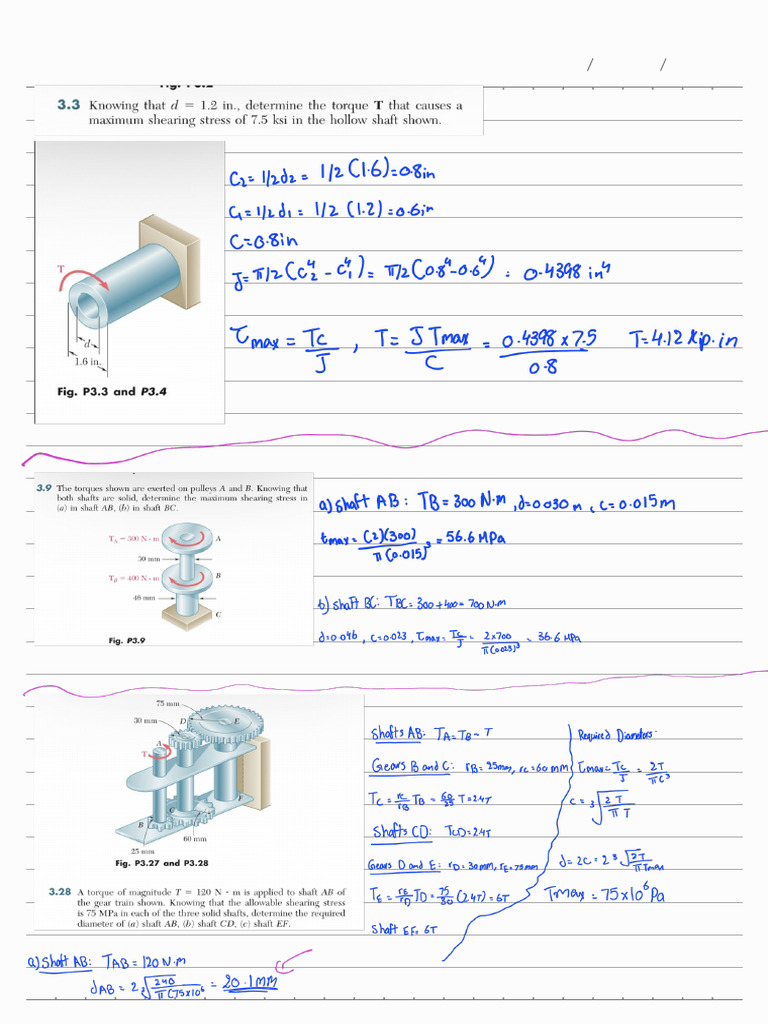 / /
3.3 Knowing that d = 1.2 in., determine the torque T that causes a
maximum shearing stress of 7.5 ksi in the hollow shaft shown.
C2 = 1/2 d2 = 1/2 (1.6) = 0.8in
C1 = 1/2 d1 = 1/2 (1.2) = 0.6in
C = 0.8in
J = π/2 (C2⁴ - C1⁴) = π/2 (0.8⁴ - 0.6⁴) = 0.4398 in⁴
τmax = Tc/J , T = J Tmax/C = 0.4398 x 7.5/0.8 T = 4.12 kip.in
T
d
1.6 in.
Fig. P3.3 and P3.4
3.9 The torques shown are exerted on pulleys A and B. Knowing that
both shafts are solid, determine the maximum shearing stress in
(a) in shaft AB, (b) in shaft BC.
TA = 300 N · m
A
30 mm
TB = 400 N · m
B
46 mm
C
Fig. P3.9
a) Shaft AB: TB = 300 N.m, d = 0.030 m, C = 0.015 m
tmax = (2)(300)/π(0.015)³ = 56.6 MPa
b) Shaft BC: TBC = 300 + 400 = 700 N.m
d = 0.046, C = 0.023, τmax = Tc/J = 2x700/π(0.023)³ = 36.6 MPa
75 mm
30 mm
D
E
A
T
F
C
B
60 mm
25 mm
Fig. P3.27 and P3.28
3.28 A torque of magnitude T = 120 N · m is applied to shaft AB of
the gear train shown. Knowing that the allowable shearing stress
is 75 MPa in each of the three solid shafts, determine the required
diameter of (a) shaft AB, (b) shaft CD, (c) shaft EF.
Shafts AB: TA = TB = T
Gears B and C: rB = 25mm, rC = 60 mm
TC = rC/rB TB = 60/25 T = 2.4T
Shafts CD: TCD = 2.4T
Gears D and E: rD = 30mm, rE = 75mm
TE = rE/rD TD = 75/30 (2.4T) = 6T
Shaft EF = 6T
Required Diameters:
τmax = Tc/J = 2T/πC³
C = ³√2T/πT
d = 2C = 2 ³√2T/πTmax
Tmax = 75x10⁶ Pa
a) Shaft AB: TAB = 120 N.m
dAB = 2 ³√240/π(75x10⁶ = 20.1 mm